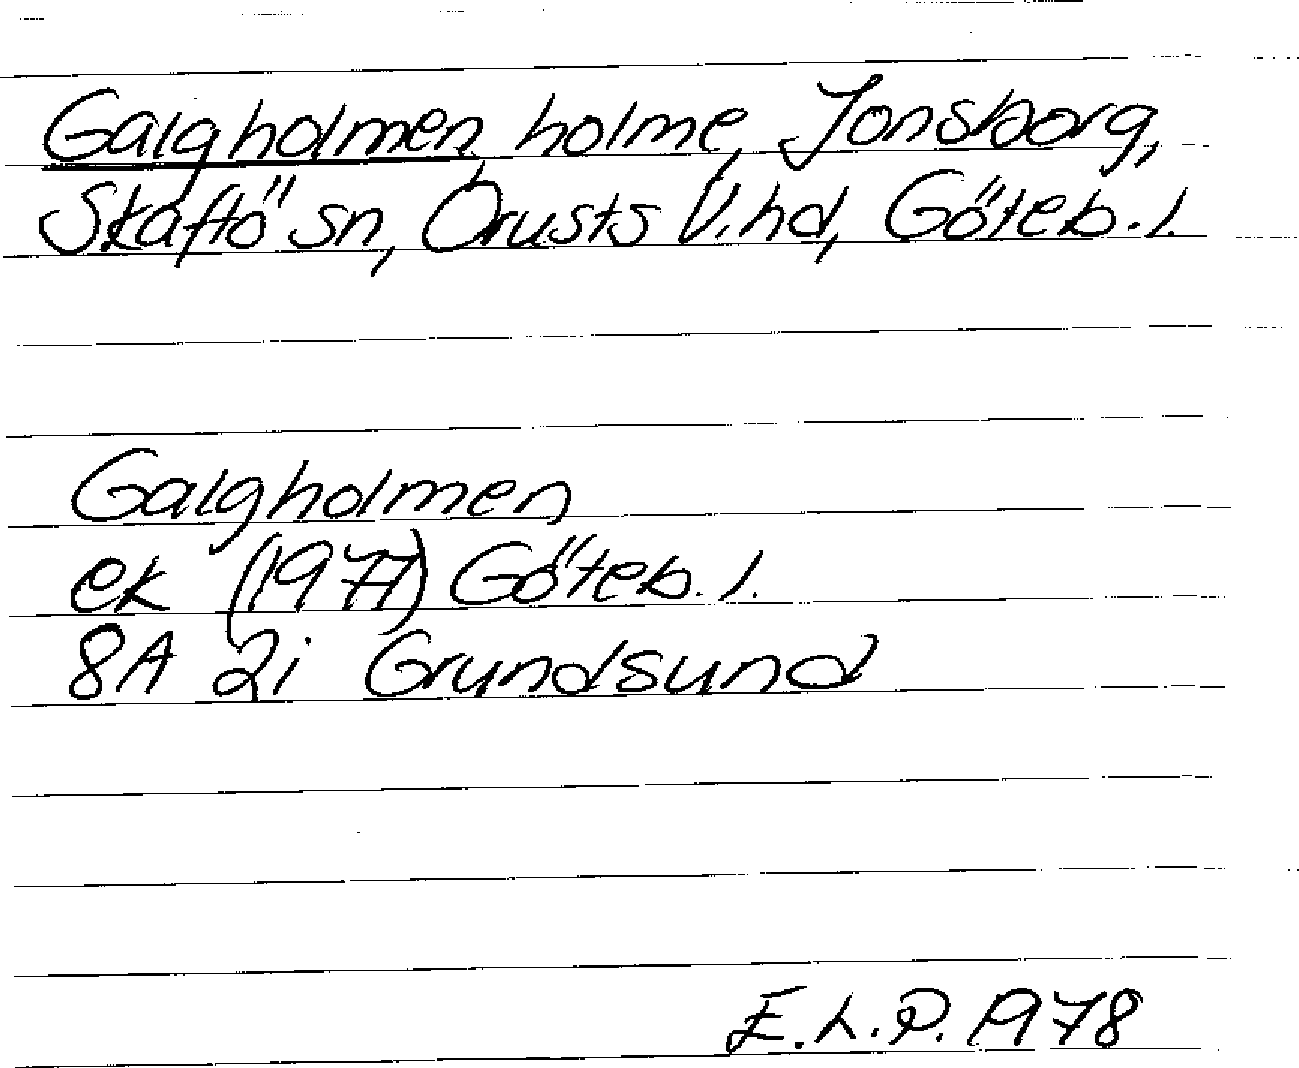 Galgholmen, holme, Jonsborg,
Skaftö sn, Orusts V. hd, Göteb. l.
Galgholmen
ek (1977) Göteb. l.
8A 2i Grundsund
E.L.P. 1978